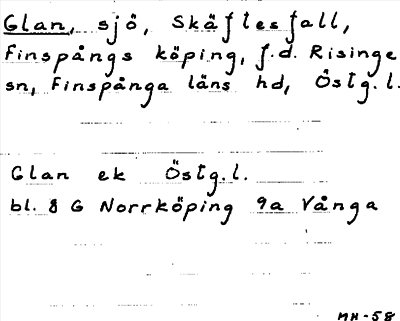 Glan, sjö, Skäftesfall,
Finspångs köping, f.d. Risinge
sn, Finspånga läns hd, Östg.l.
Glan ek Östg.l.
bl. 8 G Norrköping 9a Vånga
MH-58